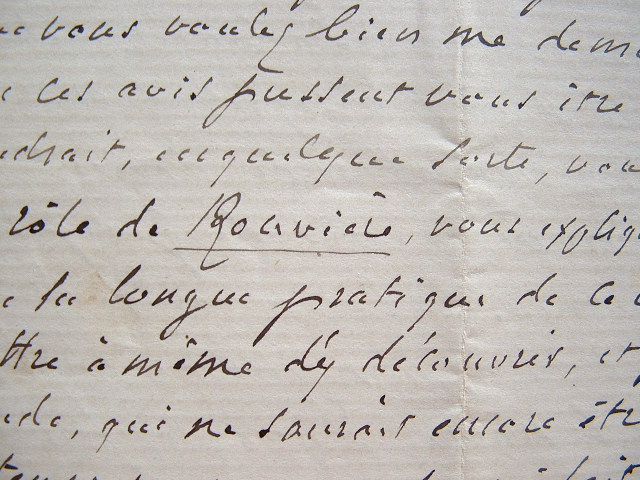 vous voulez bien me dema
ces avis pussent vous être
udrait, en quelque sorte, vou
rôle de Rouvière, vous expliqu
la longue pratique de ce
ttre à même d'y découvrir, et
nde, qui ne saurait encore êtr